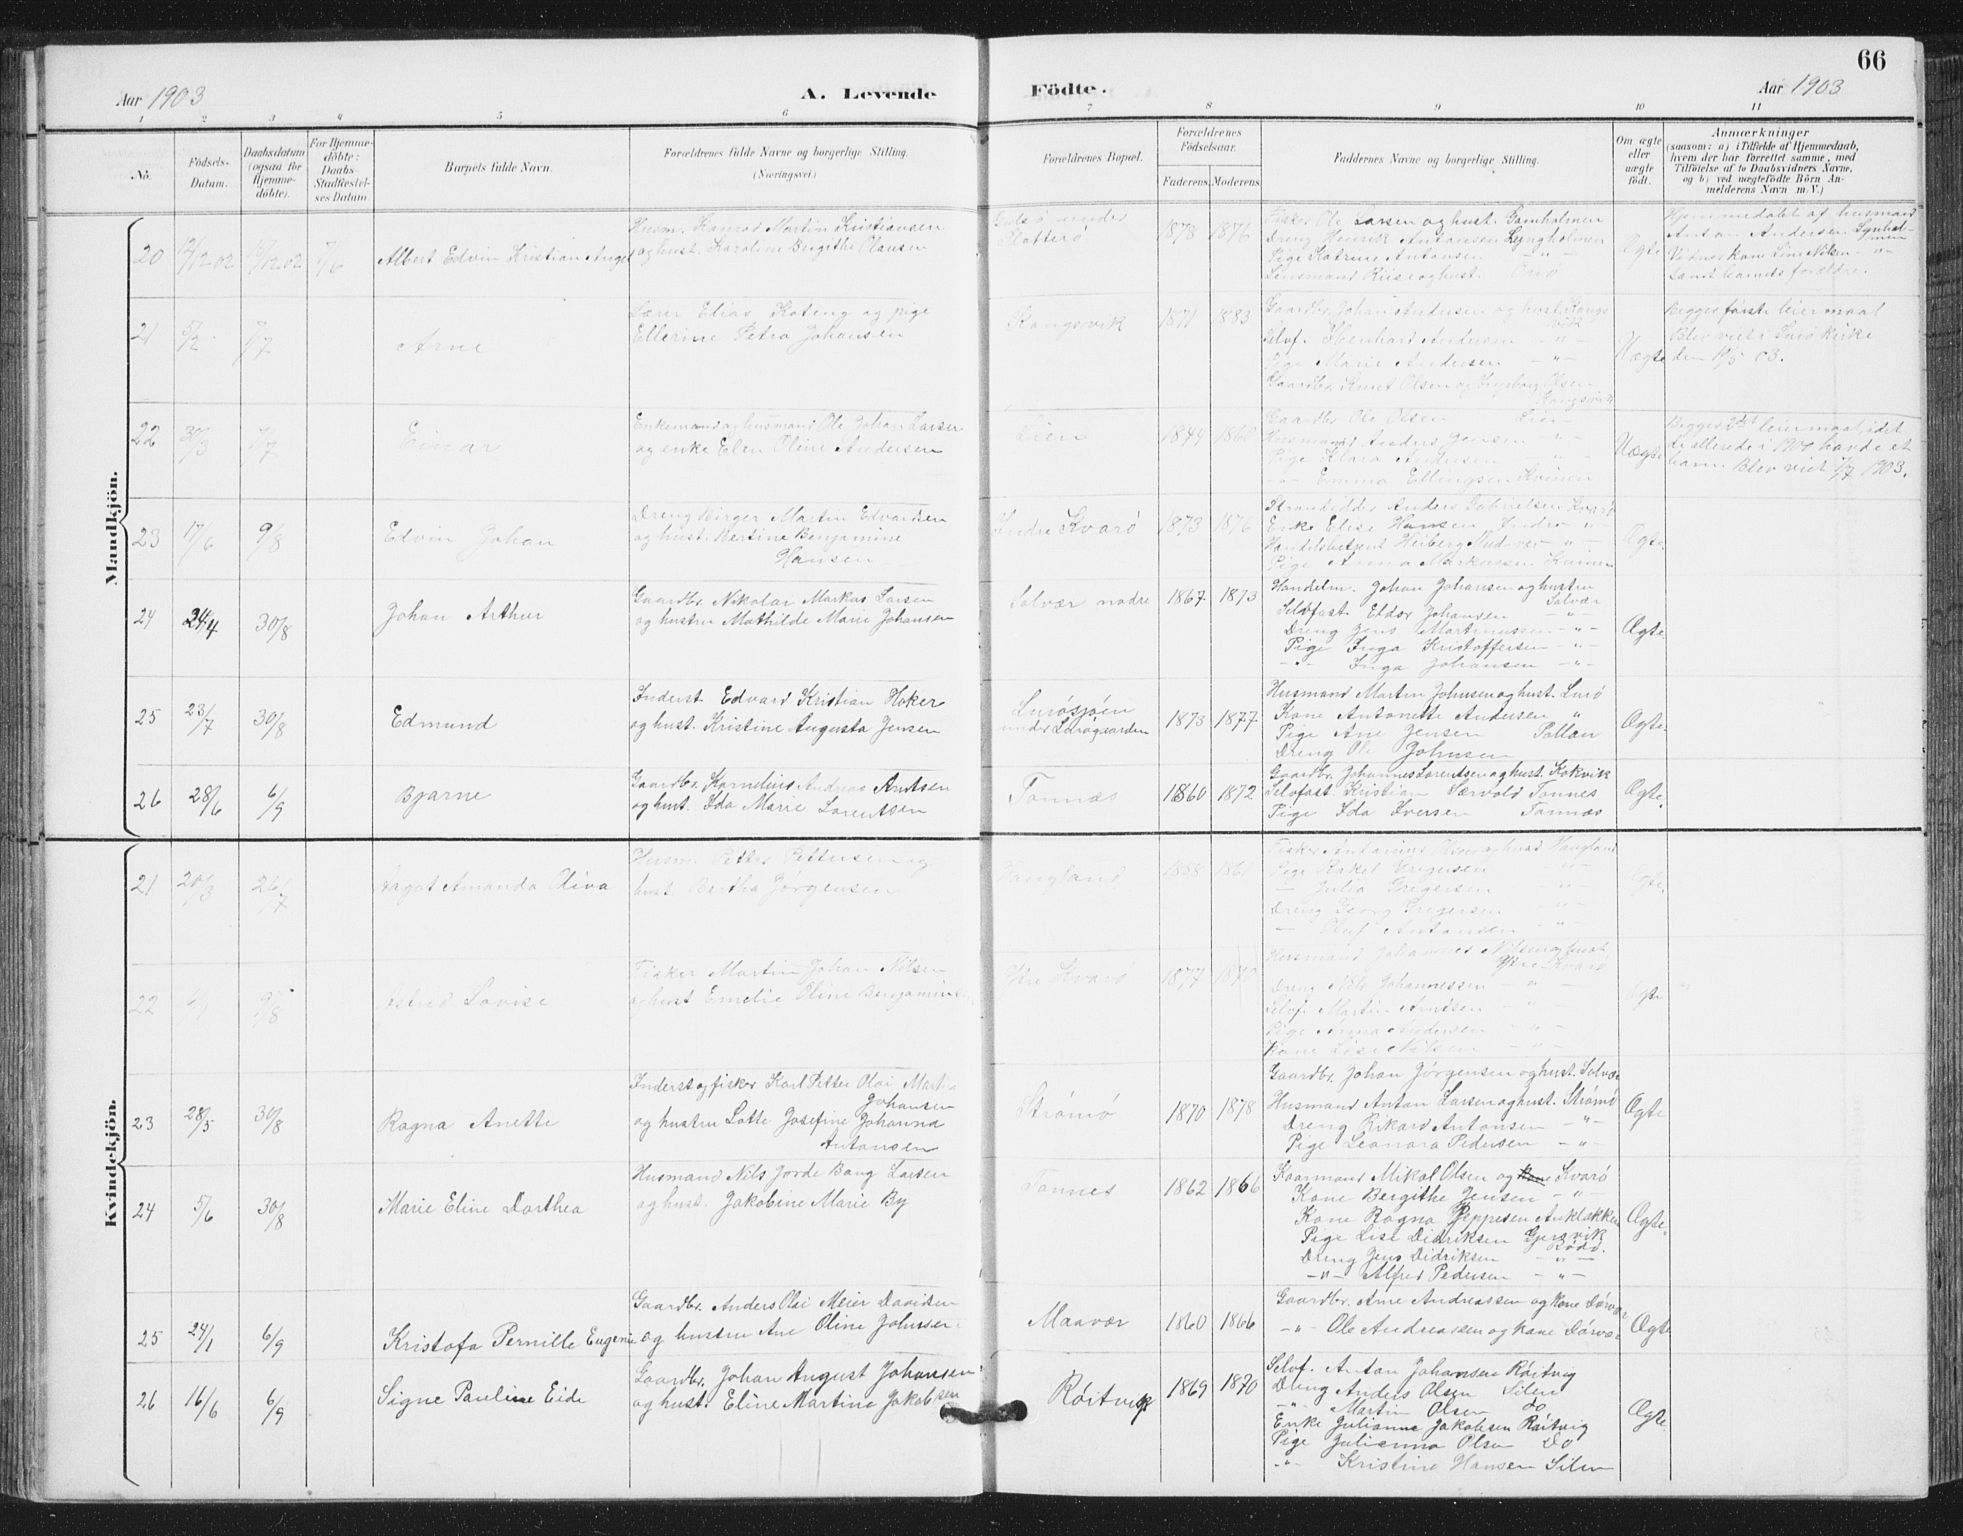 66
Aar 1903
A. Levende
Födte.
Aar 1903
1 2 3 4 5 6 7 8 9 10 11
No.
Födsels-
Datum.
Daabsdatum
(ogsaa for
Hjemme-
döbte).
For Hjemme-
döbte:
Daabs-
Stadfæstel-
ses Datum
Barnets fulde Navn.
Forældrenes fulde Navne og borgerlige Stilling.
(Næringsvei)
Forældrenes Bopæl.
Forældrenes
Födselsaar.
Faderens. Moderens.
Faddernes Navne og borgerlige Stilling.
Om ægte
eller
uægte
födt.
Anmærkninger
(saasom: a) i Tilfælde af Hjemmedaab,
hvem der har forrettet samme, med
Tilföielse af to Daabsvidners Navne,
og b) ved uægtefödte Börn An-
melderens Navn m. V.)
Mandkjön.
20 12/12 02 19/12 02 7/6 Albert Edvin Kristian Angel
Husm. Konrad Martin Kristiansen
og hust. Karoline Birgithe Olausen
under
Slotterö
1878 1876
Fisker Ole Larsen og hust. Gamholmen
Dreng Henrik Antonsen Lyngholmen
Pige Katrine Antonsen — " —
Lensmand Riise og hust. Onö
Ægte
Hjemmedöbt af husmand
Anton Andersen Lynhol-
men
Vidner kone Line Nilsen — " —
samt barnets forældre.
21 5/2 7/7 Arne
Lærer Elias Kateng og pige
Ellerine Petra Johansen
Kongsvik
1871 1883
Gaardbr. Johan Andersen og hust. Kongs
vik
Selvf. Ebenhard Andersen — " —
Pige Marie Andersen — " —
Gaardbr. Knut Olsen og Ingeborg Olsen
Kongsvik
Uægte
Begges förste leiermaal
Blev viet i Lurö Kirke
den 19/5 03.
22 30/3 7/7 Einar
Enkemand og husmand Ole Johan Larsen
og enke Elen Oline Andersen
Lien
1849 1860
Gaardbr. Ole Olsen Lien
Husmand Anders Jensen — " —
Pige Klara Andersen — " —
— " — Emma Ellingsen Kvinen
Uægte
Begges 2det leiermaal, idet
de allerede i 1900 havde et
barn. Blev viet 1903.
23 17/6 9/8 Edvin Johan
Dreng Birger Martin Edvardsen
og hust. Bertine Benjamine
Hansen
Indre Kvarö
1873 1876
Strandsidder Anders Gabrielsen Kvarö
Enke Elise Hansen Indre — " —
Handelsbetjent Heiberg — " —
Pige Anna Markussen Kvinen
Ægte.
24 24/4 30/8 Johan Arthur
Gaardbr. Nikolai Markus Larsen
og hustru Mathilde Marie Johansen
Solvær nodre
1867 1873
Handelm. Johan Johansen og hustru
Solvær
Selvfast. Eldor Johansen — " —
Dreng Jens Martinussen — " —
Pige Inga Kristoffersen — " —
— " — Inga Johansen — " —
Ægte.
25 23/7 30/8 Edmund
Inderst. Edvard Kristian Hoker
og hust. Kristine Augusta Jensen
Luròsjöen
under Lurögaarden
1873 1877
Husmand Martin Johnsen og hust. Lurö
Kone Antonette Andersen "
Pige Ane Jensen Pollan
Dreng Ole Johnsen
Ægte.
26 28/6 6/9 Bjarne
Gaardbr. Kornelius Andreas Arntsen
og hust. Ida Marie Lorentsen
Tonnæs
1860 1872
Gaardbr. Johannes Lorentsen og hust. Kokvik
Selvfast. Kristian Særvold Tonnes
Pige Ida Iversen Tonnæs
Ægte.
Kvindekjön.
21 20/3 26/7 Dagot Amanda Oliva
Husm. Petter Pettersen og
hust. Bertha Jörgensen
Haugland
1858 1861
Fisker Antonius Olsen og hust. Haugland
Pige Rakel Gregersen — " —
— Julia Gregersen — " —
Dreng Georg Gregersen — " —
— Oluf Antonsen — " —
Ægte.
22 9/8 Astrid Lovise
Fisker Martin Johan Nilsen
og hust Emelie Oline Benjaminsen
Ytre Kvarö
1877 1870
Husmand Johannes Nilsen og hust
Ytre Kvarö
Dreng Nils Johannessen — " —
Selvf. Martin Arntsen — " —
Pige Anna Andersen — " —
Kone Lise Nilsen — " —
Ægte
23 28/5 30/8 Ragna Anette
Inderst og fisker Karl Petter Olai Martin
Johansen
og hustru Lotte Josefine Johanna
Antonsen
Strömö
1870 1878
Gaardbr. Johan Jörgensen og hust. Solvær
Husmand Anton Larsen og hust. Strömö
Dreng Rikard Antonsen — " —
Pige Leonora Pedersen — " —
Ægte
24 5/6 30/8 Marie Eline Dorthea
Husmand Nils Jorde Bang Larsen
og hust. Jakobine Marie By
Tonnes
1862 1866
Kaarmand Mikal Olsen og kone Kvarö
Kone Bergithe Jensen — " —
Kone Ragna Jeppesen Anklakken
Pige Lise Didriksen Gjersvik
Rödö.
Dreng Jens Didriksen — " —
— " — Alfred Pedersen — " —
Ægte.
25 24/1 6/9 Kristofa Pernille Eugenie
Gaardbr. Anders Olai Meier Davidsen
og hustru Ane Oline Johnsen
Maavær
1860 1866
Gaardbr. Arne Andreassen og kone Dörvær
— " — Ole Andreassen og kone Dörvær
Ægte
26 16/6 6/9 Signe Pauline Eide
Gaardbr. Johan August Johansen
og hust. Eline Martine Jakobsen
Röitvik
1869 1870
Selvf. Anton Johansen Röitvig
Dreng Anders Olsen Silen
— " — Martin Olsen do
Enke Julianne Jakobsen Röitvig
Pige Julianna Olsen Do
— " — Kristine Hansen Silen
Ægte.